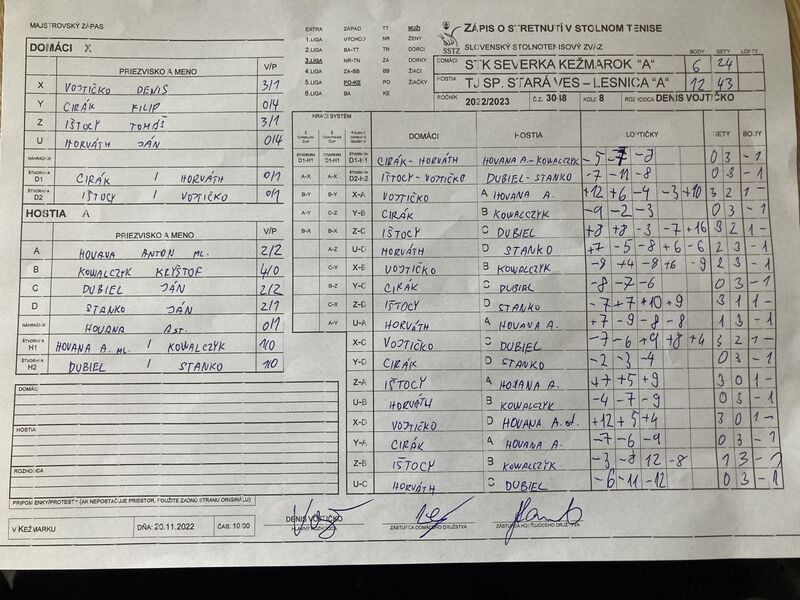 MAJSTROVSKÝ ZÁPAS
DOMÁCI X
PRIEZVISKO A MENO V/P
X VOJTIČKO DENIS 3/1
Y CIRÁK FILIP 0/4
Z IŠTOCY TOMÁŠ 3/1
U HORVÁTH JÁN 0/4
NÁHRADNÍK
ŠTVORHRA D1 CIRÁK / HORVÁTH 0/1
ŠTVORHRA D2 IŠTOCY / VOJTIČKO 0/1
HOSTIA A
PRIEZVISKO A MENO V/P
A HOVANA ANTON ML. 2/2
B KOWALCZYK KRYŠTOF 4/0
C DUBIEL JÁN 2/2
D STANKO JÁN 2/1
NÁHRADNÍK HOVANA 0/1
ŠTVORHRA H1 HOVANA A. ML. / KOWALCZYK 1/0
ŠTVORHRA H2 DUBIEL / STANKO 1/0
DOMÁCI
HOSTIA
ROZHODCA
PRIPOMIENKY/PROTESTY (AK NEPOSTAČUJE PRIESTOR, POUŽITE ZADNÚ STRANU ORIGINÁLU)
V KEŽMARKU DŇA: 20.11.2022 ČAS: 10:00
EXTRA ZÁPAD TT MUŽI
1.LIGA VÝCHOD NR ŽENY
2.LIGA BA-TT TN DORCI
3.LIGA NR-TN ZA DORKY
4.LIGA ZA-BB BB ŽIACI
5.LIGA PO-KE PO ŽIAČKY
6.LIGA BA KE
SSTZ
ZÁPIS O STRETNUTÍ V STOLNOM TENISE
SLOVENSKÝ STOLNOTENISOVÝ ZVÄZ
BODY SETY LOPTY
DOMÁCI STK SEVERKA KEŽMAROK "A" 6 24
HOSTIA TJ SP. STARÁ VES – LESNICA "A" 12 43
ROČNÍK 2022/2023 Č.Z. 3018 KOLO 8 ROZHODCA DENIS VOJTIČKO
HRACÍ SYSTÉM
DOMÁCI HOSTIA LOPTIČKY SETY BODY
ŠTVORHRA D1-H1 CIRÁK - HORVÁTH HOVANA A - KOWALCZYK -5 -7 -8 0 3 - 1
A-X A-X ŠTVORHRA D2-H2 IŠTOCY - VOJTIČKO DUBIEL - STANKO -7 -11 -8 0 3 - 1
B-Y B-Y X-A VOJTIČKO A HOVANA A. +12 +6 -4 -3 +10 3 2 1 -
A-Y C-Z Y-B CIRÁK B KOWALCZYK -9 -2 -3 0 3 - 1
B-X B-X Z-C IŠTOCY C DUBIEL +8 +8 -3 -7 +16 3 2 1 -
A-Z U-D HORVÁTH D STANKO +7 -5 -8 +6 -6 2 3 - 1
C-Y X-B VOJTIČKO B KOWALCZYK -9 +4 -8 +6 -9 2 3 - 1
B-Z Y-C CIRÁK C DUBIEL -8 -7 -6 0 3 - 1
C-X Z-D IŠTOCY D STANKO -7 +7 +10 +9 3 1 1 -
A-Y U-A HORVÁTH A HOVANA A. +7 -9 -8 -8 1 3 - 1
X-C VOJTIČKO C DUBIEL -7 -6 +9 +8 +4 3 2 1 -
Y-D CIRÁK D STANKO -2 -3 -4 0 3 - 1
Z-A IŠTOCY A HOVANA A. +7 +5 +9 3 0 1 -
U-B HORVÁTH B KOWALCZYK -4 -7 -9 0 3 - 1
X-D VOJTIČKO D HOVANA A. st. +12 +5 +4 3 0 1 -
Y-A CIRÁK A HOVANA A. -7 -6 -9 0 3 - 1
Z-B IŠTOCY B KOWALCZYK -3 -8 12 -8 1 3 - 1
U-C HORVÁTH C DUBIEL -6 -11 -12 0 3 - 1
DENIS VOJTIČKO
HLAVNÝ ROZHODCA
ZÁSTUPCA DOMÁCEHO DRUŽSTVA
ZÁSTUPCA HOSŤUJÚCEHO DRUŽSTVA